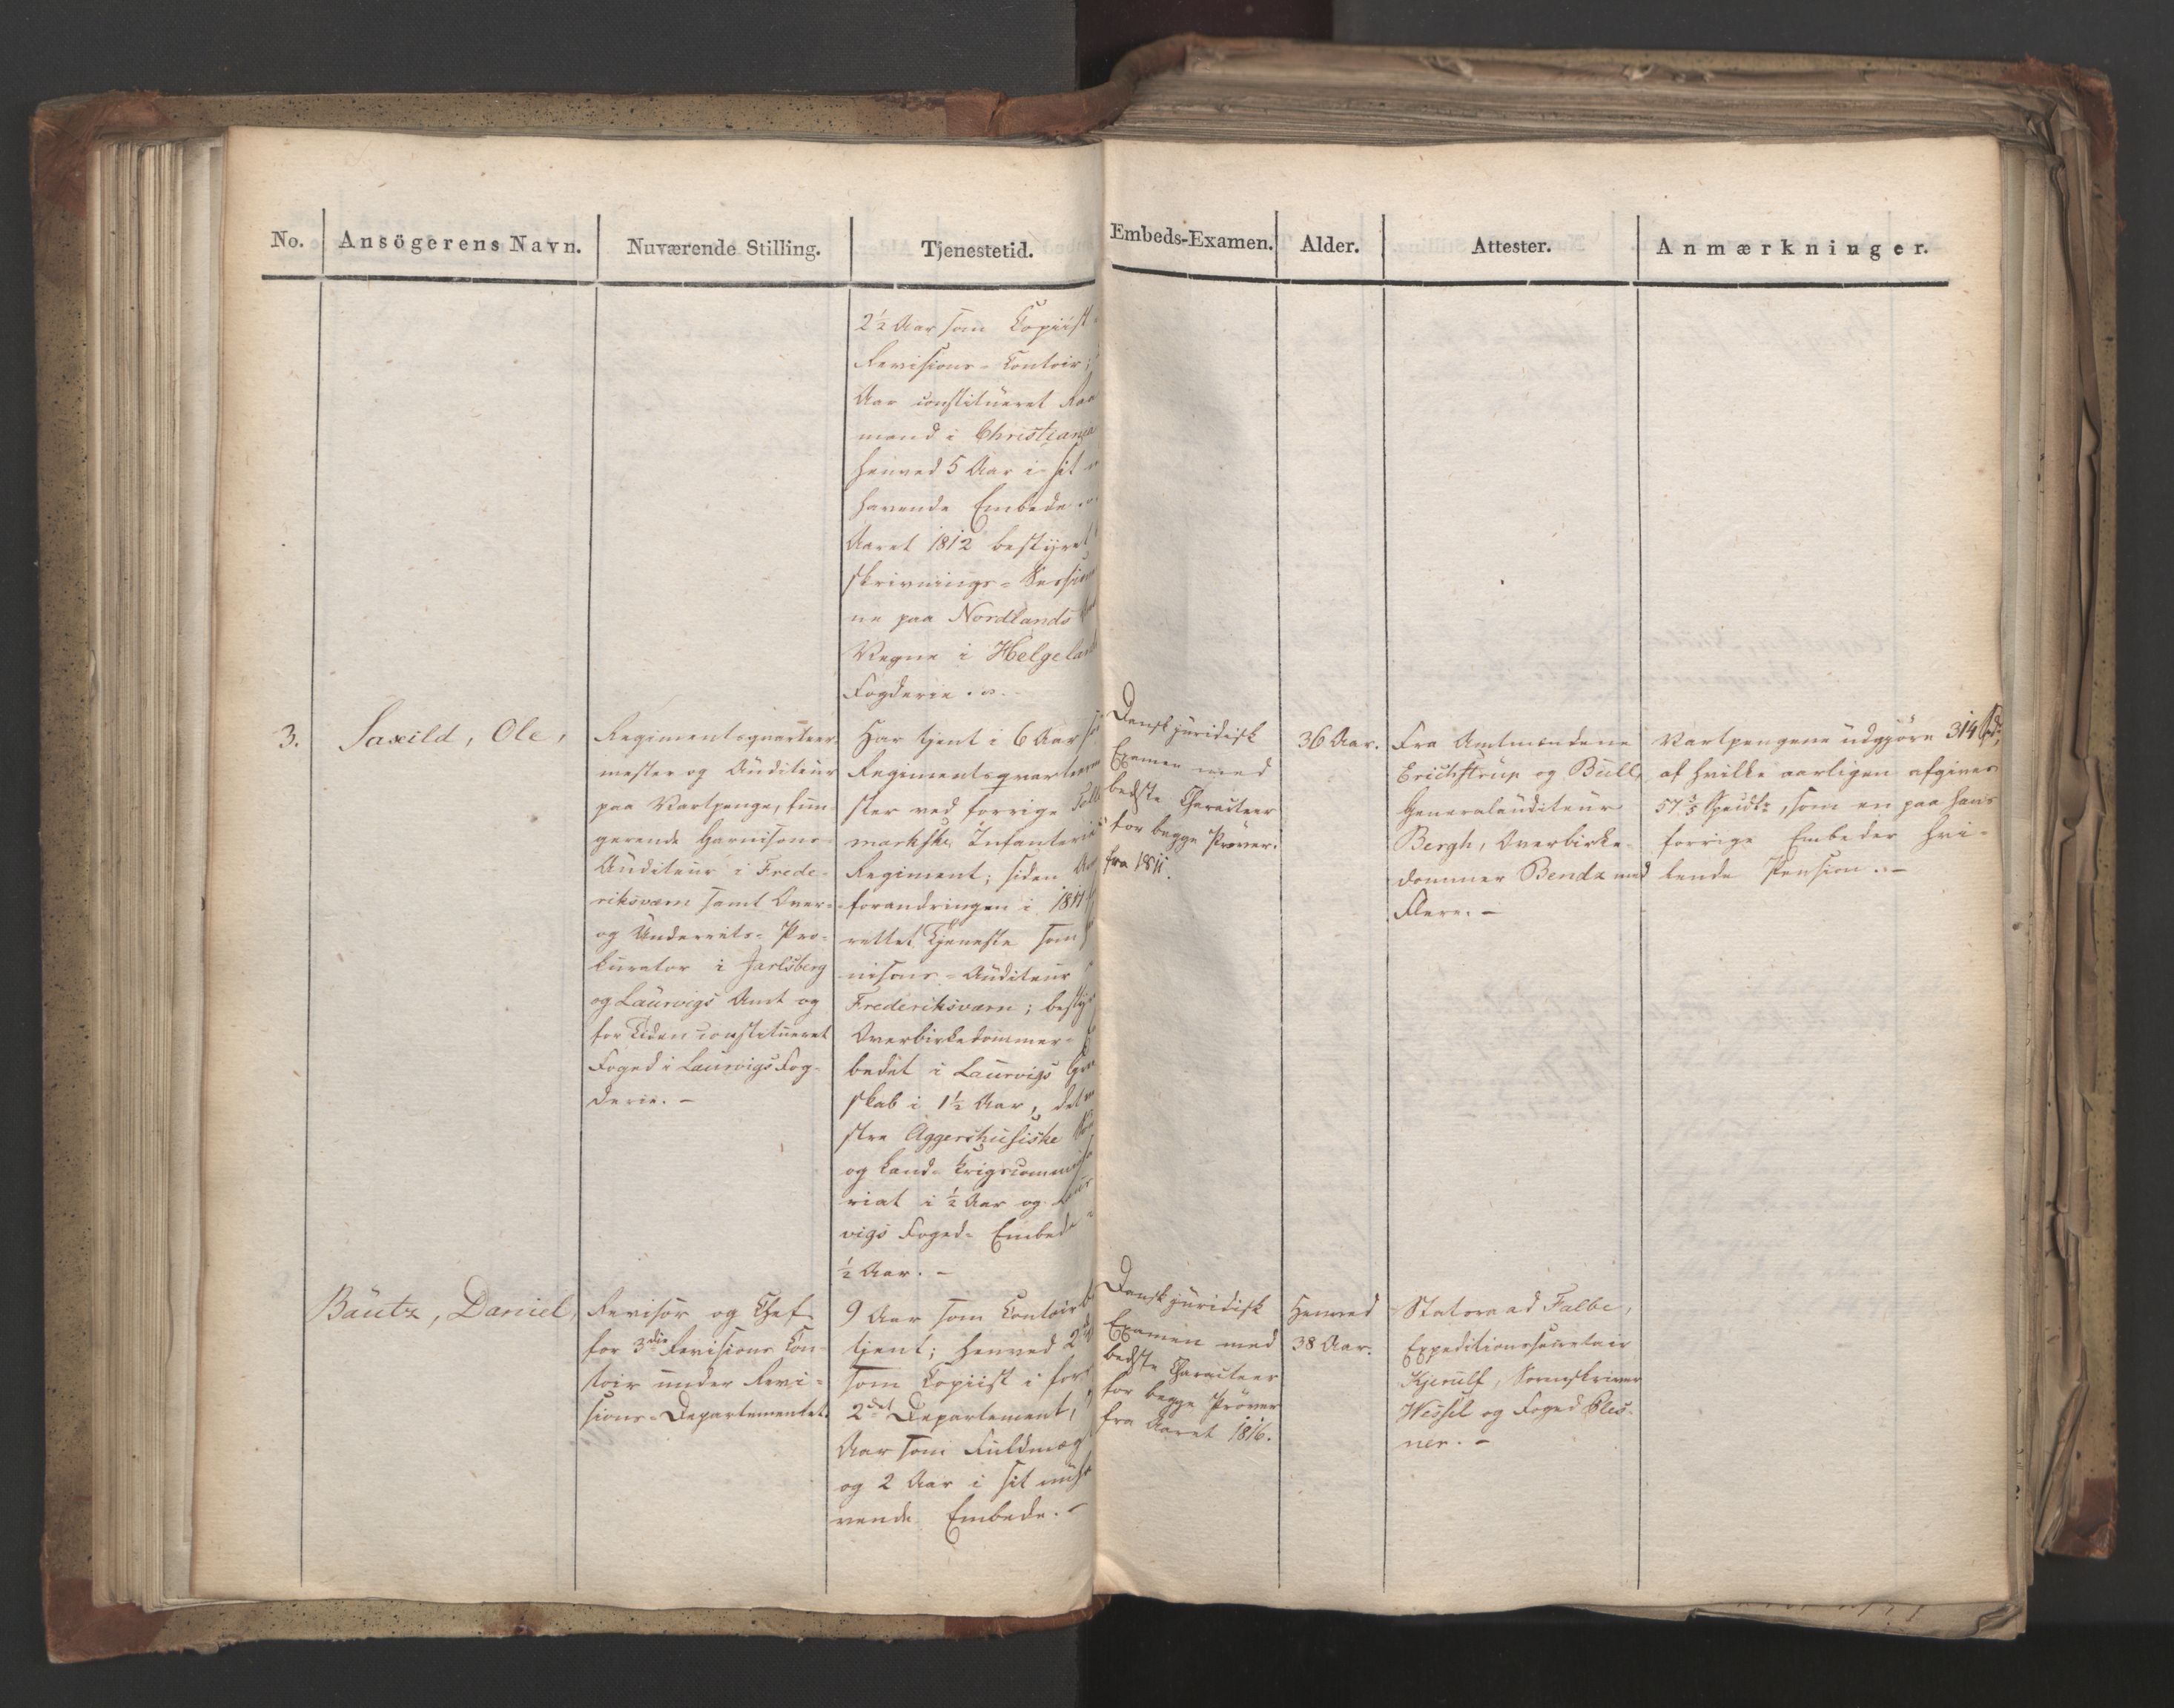 No.
Ansögerens Navn.
Nuværende Stilling.
Tjenestetid.
Embeds-Examen.
Alder.
Attester.
Anmærkninger.
2½ Aar som Copiist
Revisions-Contoir;
Aar constitueret Raa
mand i Christiania
henved 5 Aar i sit
havende Embede.
Aaret 1812 bestyret
skrivnings-Session
ne paa Nordlands
Vegne i Helgelands
Fogderie.
3.
Saxild, Ole,
Regimentsquarteer-
mester og Auditeur
paa Vartpenge, fun-
gerende Garnisons-
Auditeur i Frede-
riksværn samt Over-
og Underrets-Pro-
curator i Jarlsberg
og Laurvigs Amt og
for Tiden constitueret
Foged i Laurvigs Fog-
derie. -
Har tjent i 6 Aar
Regimentsqvarteerme
ster ved forrige Tolle
markske Infanterie
Regiment; siden
forandringen i 1817
rettet Tjeneste som
nisons-Auditeur
Frederiksværn; besty
Overbirkedommer-
bedet i Laurvigs Grev
skab i 1½ Aar, det
stre Aggershusiske
og Land-Krigscommissa
riat i ½ Aar og Laur
vigs Foged-Embede
½ Aar. -
Dansk juridisk
Examen med
bedste Characteer
for begge Prøver.
fra 1811.
36 Aar.
Fra Amtmændene
Erichstrup og Bull,
Generalauditeur
Bergh, Overbirke-
dommer Bendz med
Flere. -
Vartpengene udgjøre 314
af hvilke aarligen afgives
57 3/5 Speidlr, som en paa hans
forrige Embeder hvi-
lende Pension. -
Bautz, Daniel,
Revisor og Chef
for 3die Revisions Con-
toir under Revi-
sions-Departementet.
9 Aar som Contoirbe
tjent; henved 2
som Copiist i for
2det Departement,
Aar som Fuldmæg
og 2 Aar i sit nuha
vende Embede. -
Dansk juridisk
Examen med
bedste Characteer
for begge Prøver
fra Aaret 1816.
Henved
38 Aar.
Statsraad Falbe,
Expeditionssecretair
Kjerulf, Sorenskriver
Wessel og Foged Ples-
ner. -